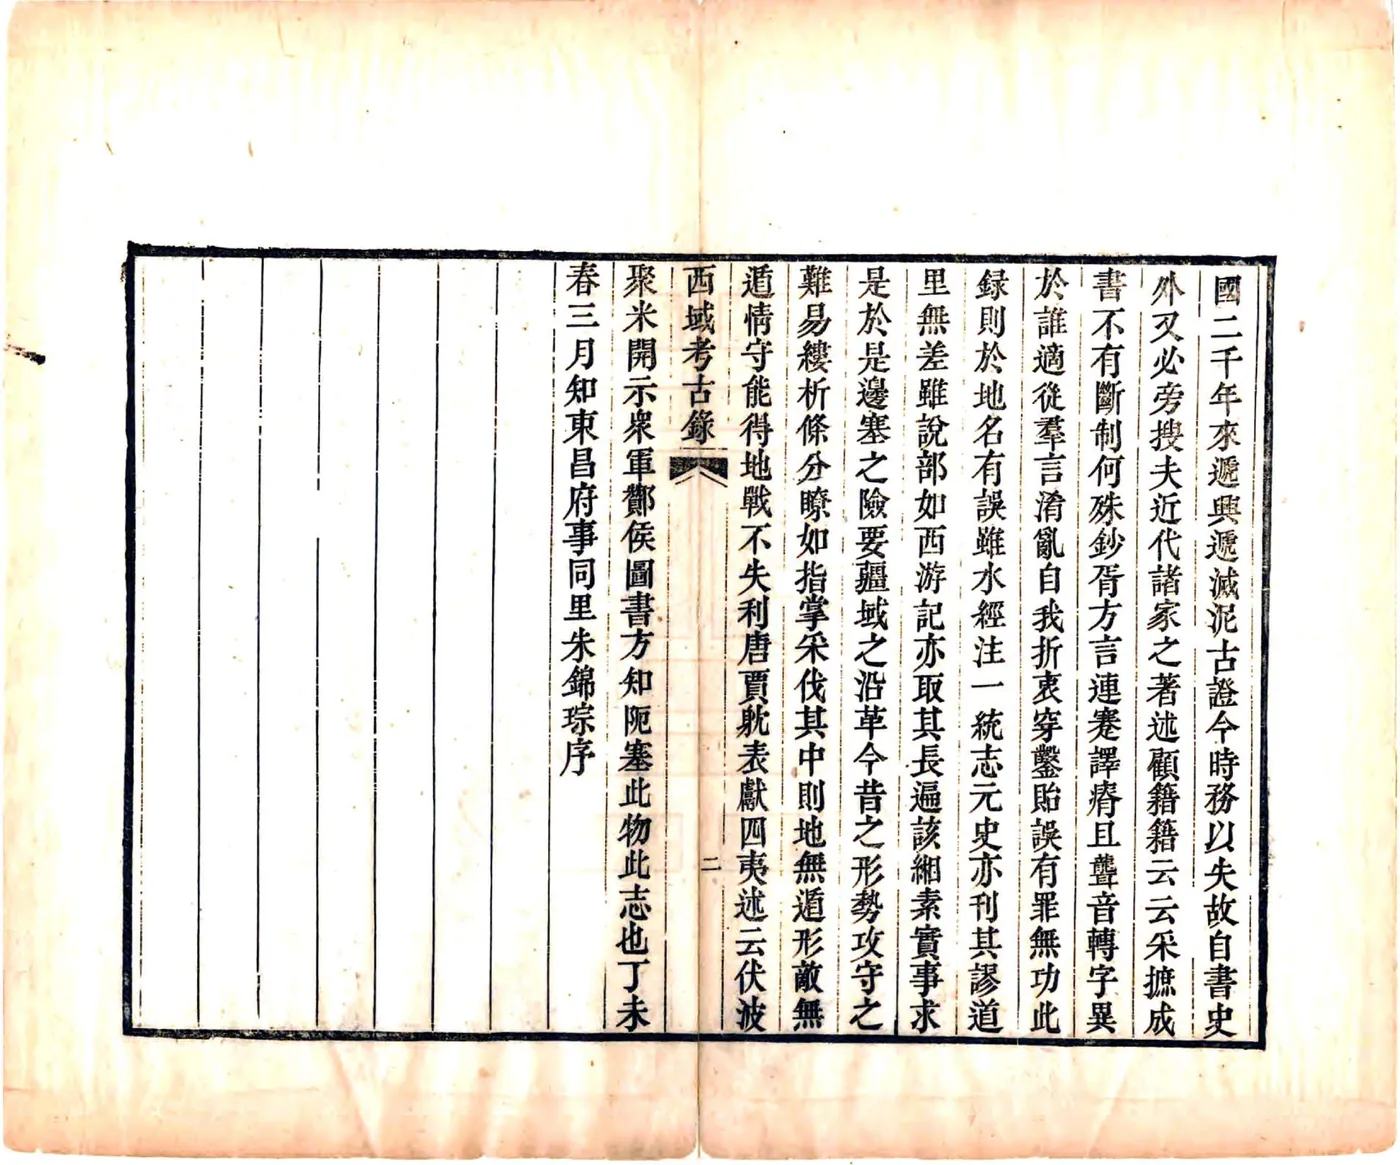 國二千年來遞興遞滅泥古證今時務以失故自書史
外又必旁搜夫近代諸家之著述顧籍籍云云采摭成
書不有斷制何殊鈔胥方言連蹇譯瘠且聾音轉字異
於誰適從羣言淆亂自我折衷穿鑿貽誤有罪無功此
録則於地名有誤雖水經注一統志元史亦刊其謬道
里無差雖說部如西游記亦取其長遍該緗素實事求
是於是邊塞之險要疆域之沿革今昔之形勢攻守之
難易縷析條分瞭如指掌采伐其中則地無遁形敵無
遁情守能得地戰不失利唐賈躭表獻四夷述云伏波
西域考古錄
二
聚米開示衆軍酇侯圖書方知阨塞此物此志也丁未
春三月知東昌府事同里朱錦琮序